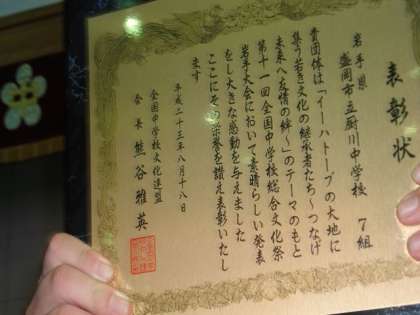 表彰状
岩手県
盛岡市立厨川中学校 7組
貴団体は「イーハトーブの大地に
集う若き文化の継承者たち〜つなげ
未来へ友情の絆〜」のテーマのもと
第十一回全国中学校総合文化祭
岩手大会において素晴らしい発表
をし大きな感動を与えました
ここにその栄誉を讃え表彰いたし
ます
平成二十三年八月十八日
全国中学校文化連盟
会長 熊谷雅英